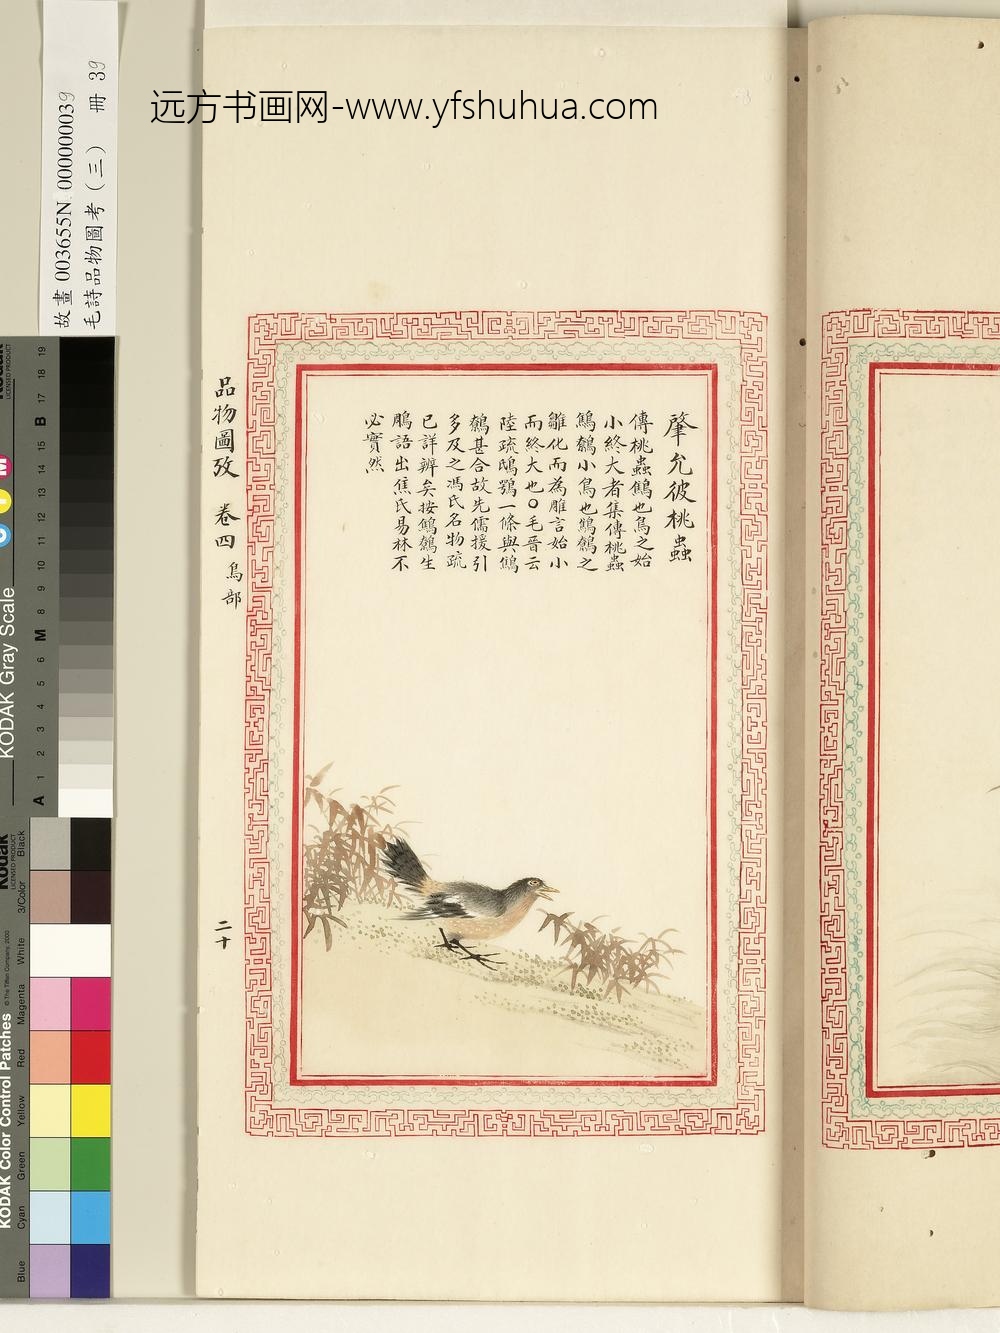 远方书画网-www.yfshuhua.com
故畫 003655N 000000039
毛詩品物圖考（三） 冊 39
肇允彼桃蟲
傳桃蟲鷦也鳥之始
小終大者集傳桃蟲
鷦鷯小鳥也鷦鷯之
雛化而為鵰言始小
而終大也○毛晉云
陸疏鴟鴞一條與鷦
鷯甚合故先儒援引
多及之馮氏名物疏
已詳辨矣按鷦鷯生
鵰語出焦氏易林不
必實然
品物圖攷 卷四 鳥部
二十
KODAK Gray Scale
Kodak
LICENSED PRODUCT
C Y M
A 1 2 3 4 5 6 M 8 9 10 11 12 13 14 15 B 17 18 19
KODAK Color Control Patches
© The Tiffen Company, 2000
Kodak
LICENSED PRODUCT
Blue Cyan Green Yellow Red Magenta White 3/Color Black